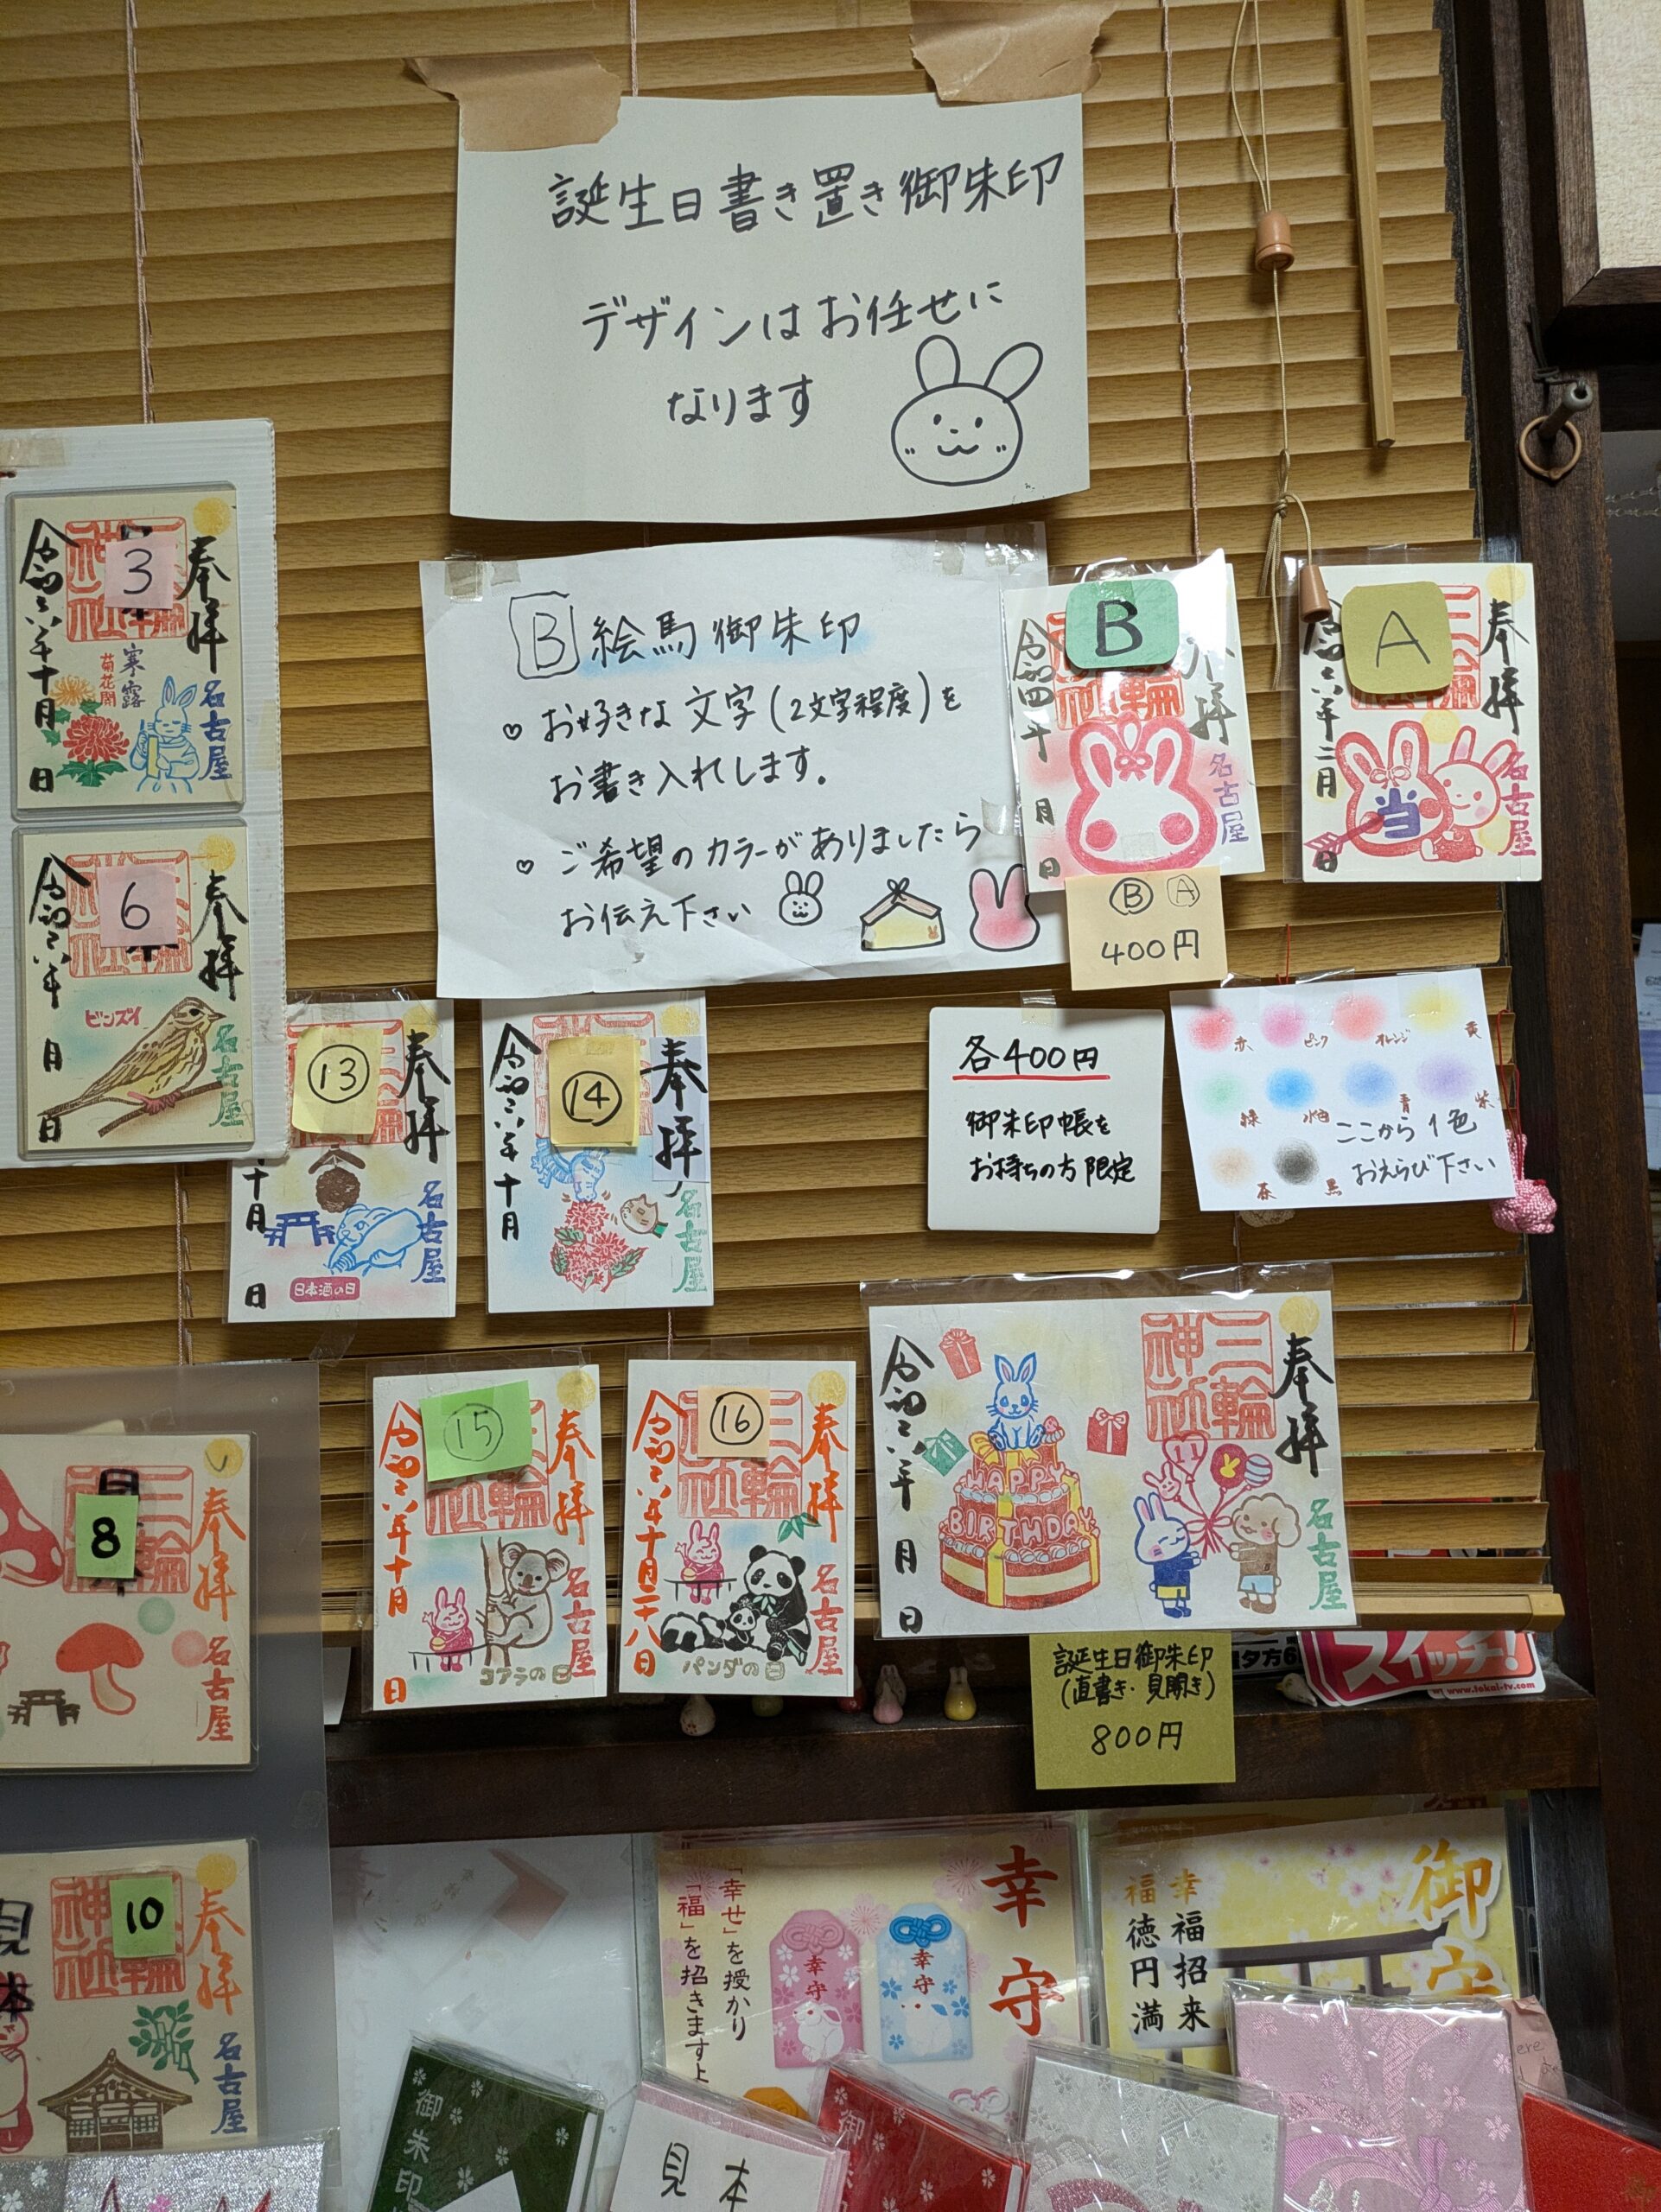 誕生日書き置き御朱印
デザインはお任せに
なります
B 絵馬御朱印
♡ お好きな文字(2文字程度)を
お書き入れします。
♡ ご希望のカラーがありましたら
お伝え下さい
B
奉拝
名古屋
令和四年
月
日
Ⓑ Ⓐ
400円
A
奉拝
名古屋
令和六年二月
日
当
3
奉拝
名古屋
寒露
菊花開
令和六年十月
日
6
奉拝
名古屋
ビンズイ
令和六年
月
日
⑬
奉拝
名古屋
十月
日
日本酒の日
⑭
奉拝
名古屋
令和六年十月
各400円
御朱印帳を
お持ちの方限定
赤 ピンク オレンジ 黄
緑 水色 青 紫
茶 黒
ここから1色
おえらび下さい
⑮
奉拝
名古屋
令和六年十月
日
コアラの日
⑯
三輪神社
奉拝
名古屋
令和六年十月二十八日
パンダの日
奉拝
三輪神社
名古屋
HAPPY
BIRTHDAY
令和六年
月
日
誕生日御朱印
(直書き・見開き)
800円
スイッチ!
www.tokai-tv.com
8
奉拝
名古屋
10
奉拝
名古屋
見本
幸守
「幸せ」を授かり
「福」を招きますよ
幸守
幸守
御守
幸福招来
福徳円満
御朱印
見本
御